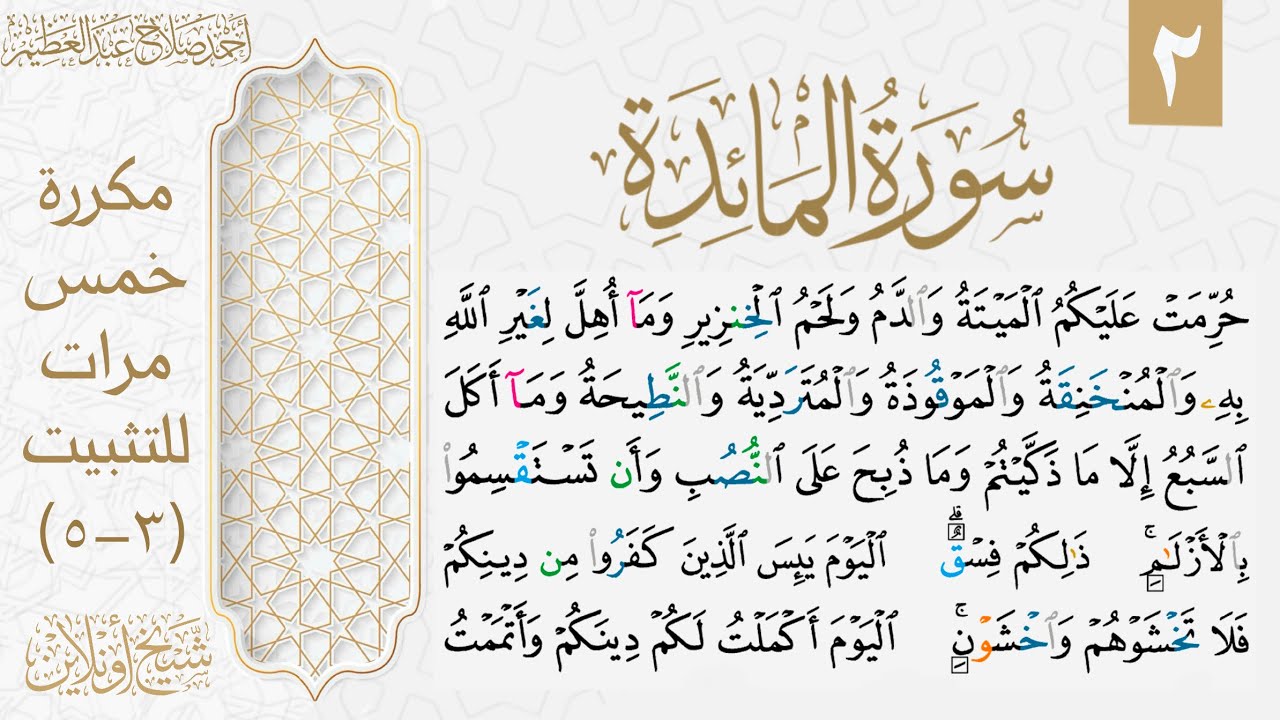 ٢
أحمد صلاح عبد العظيم
سُورَةُ المَائِدَةِ
مكررة
خمس
مرات
للتثبيت
(٣-٥)
شيخ أونلاين
حُرِّمَتْ عَلَيْكُمُ ٱلْمَيْتَةُ وَٱلدَّمُ وَلَحْمُ ٱلْخِنزِيرِ وَمَآ أُهِلَّ لِغَيْرِ ٱللَّهِ
بِهِۦ وَٱلْمُنْخَنِقَةُ وَٱلْمَوْقُوذَةُ وَٱلْمُتَرَدِّيَةُ وَٱلنَّطِيحَةُ وَمَآ أَكَلَ
ٱلسَّبُعُ إِلَّا مَا ذَكَّيْتُمْ وَمَا ذُبِحَ عَلَى ٱلنُّصُبِ وَأَن تَسْتَقْسِمُوا۟
بِٱلْأَزْلَـٰمِ ۚ ذَٰلِكُمْ فِسْقٌ ۗ ٱلْيَوْمَ يَئِسَ ٱلَّذِينَ كَفَرُوا۟ مِن دِينِكُمْ
فَلَا تَخْشَوْهُمْ وَٱخْشَوْنِ ۚ ٱلْيَوْمَ أَكْمَلْتُ لَكُمْ دِينَكُمْ وَأَتْمَمْتُ